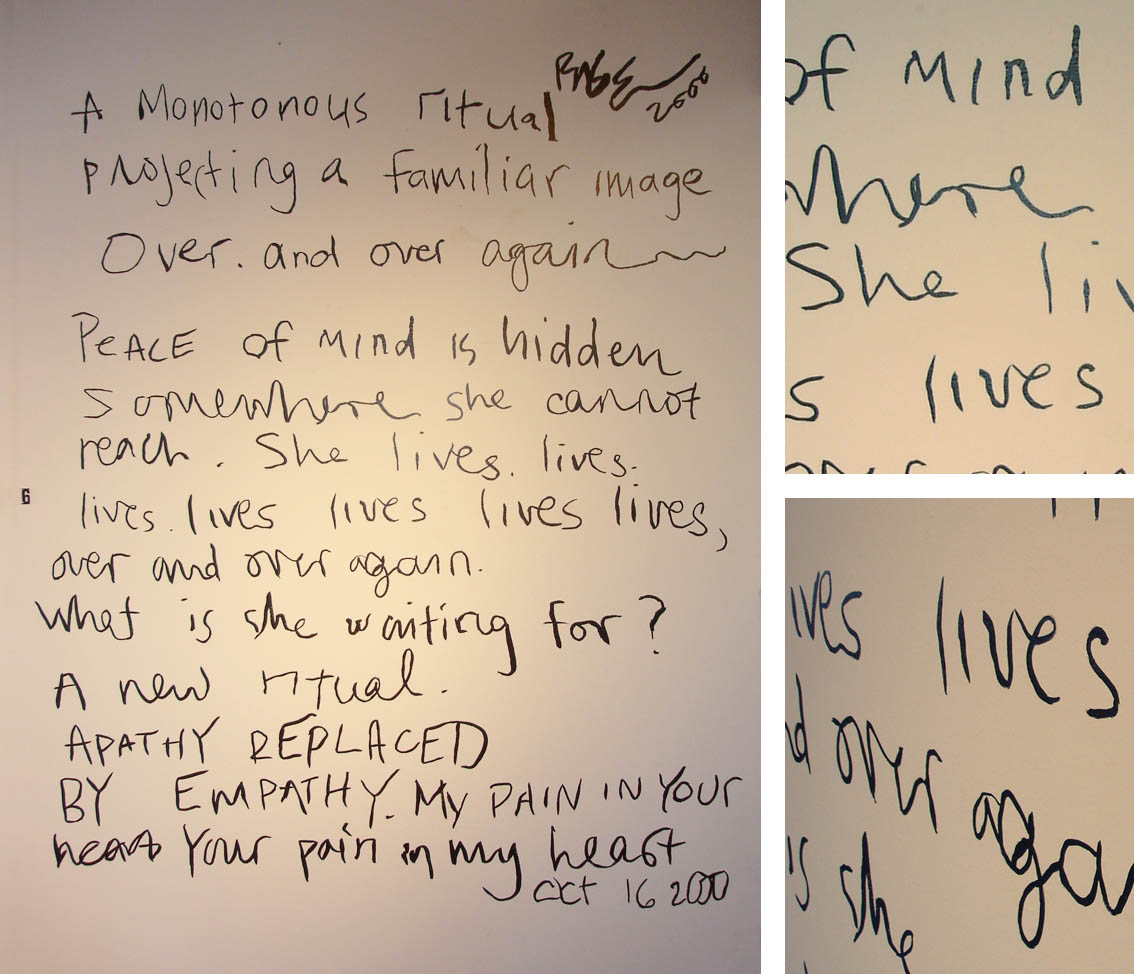 RAGE 2000
A Monotonous ritual
projecting a familiar image
Over. and over again
PeACE of Mind is hidden
somewhere she cannot
reach. She lives. lives.
6
lives. lives lives lives lives,
over and over again.
What is she waiting for?
A new ritual.
APATHY REPLACED
BY EMPATHY. My PAIN IN YOUR
heart Your pain in my heart
oct 16 2000
of Mind
where
She liv
s lives
ives lives
d over aga
is she